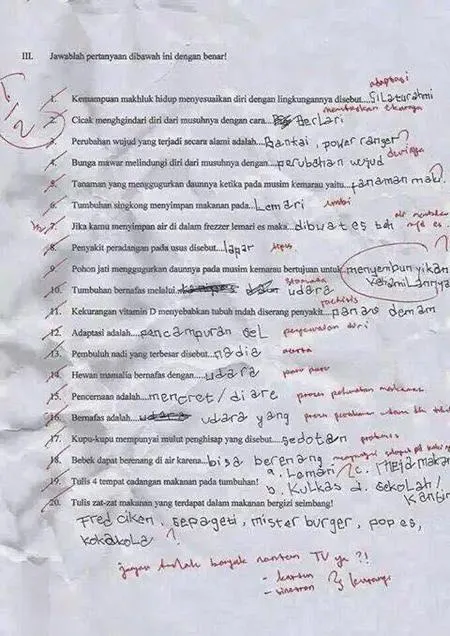 III. Jawablah pertanyaan dibawah ini dengan benar!
adaptasi
1. Kemampuan makhluk hidup menyesuaikan diri dengan lingkungannya disebut....Silaturahmi
2. Cicak menghgindari diri dari musuhnya dengan cara... Berlari
3. Perubahan wujud yang terjadi secara alami adalah....Bantai, power ranger?
durinya
4. Bunga mawar melindungi diri dari musuhnya dengan....perubahan wujud
5. Tanaman yang menggugurkan daunnya ketika pada musim kemarau yaitu....tanaman maki.
6. Tumbuhan singkong menyimpan makanan pada....Lemari umbi
7. Jika kamu menyimpan air di dalam frezzer lemari es maka...dibuat es teh
8. Penyakit peradangan pada usus disebut....lapar tipus
9. Pohon jati menggugurkan daunnya pada musim kemarau bertujuan untuk menyembunyikan kehamilannya
stomata
10. Tumbuhan bernafas melalui... udara
11. Kekurangan vitamin D menyebabkan tubuh mdah diserang penyakit...panas demam
12. Adaptasi adalah....pencampuran Gel penyesuaian diri
13. Pembuluh nadi yang terbesar disebut...nadia aorta
14. Hewan mamalia bernafas dengan.....udara paru paru
15. Pencernaan adalah....mencret/diare proses
16. Bernafas adalah... udara yang proses
17. Kupu-kupu mempunyai mulut penghisap yang disebut....sedotan probosis
18. Bebek dapat berenang di air karena...bisa berenang
19. Tulis 4 tempat cadangan makanan pada tumbuhan! a. Lemari c. meja makan
b. Kulkas d. sekolah/ kantin
20. Tulis zat-zat makanan yang terdapat dalam makanan bergizi seimbang!
Fred ciken, sepageti, mister burger, pop es,
kokakola ?
jangan terlalu banyak nonton TV ya ?!
- kartun
- sinetron } kurangi